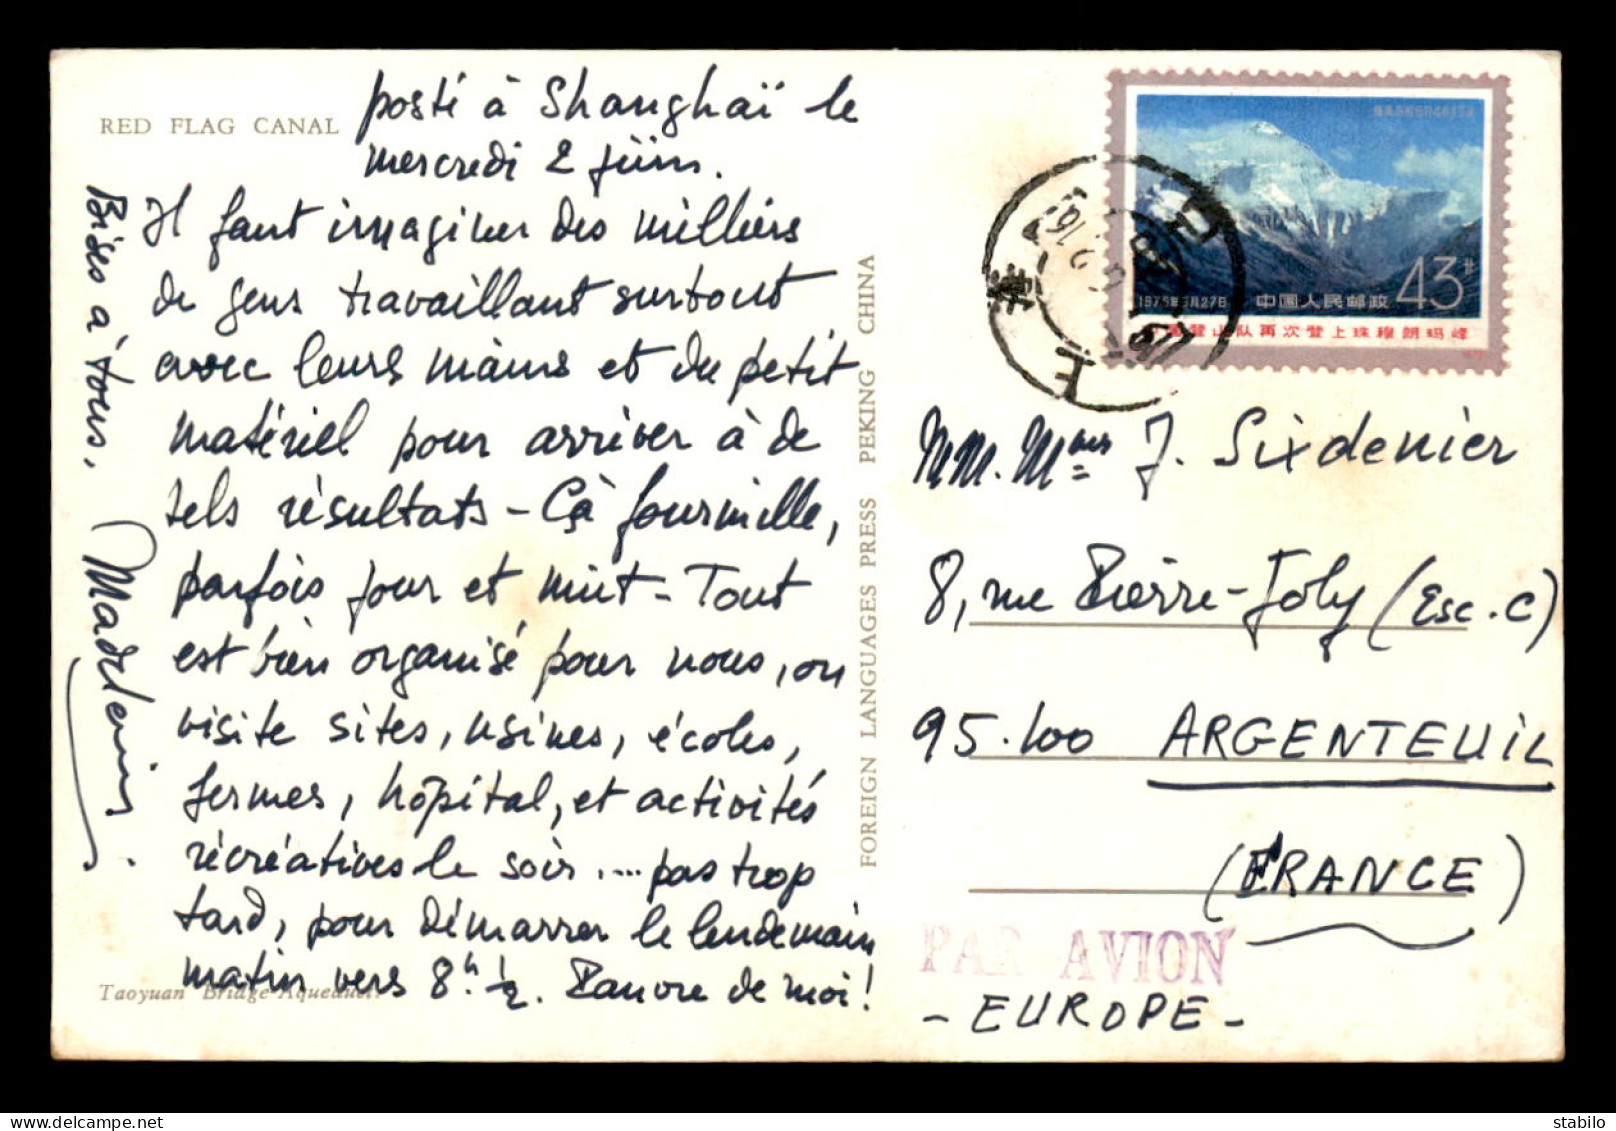 RED FLAG CANAL
posté à Shanghaï le
mercredi 2 juin.
Il faut imaginer des milliers
de gens travaillant surtout
avec leurs mains et du petit
matériel pour arriver à de
tels résultats - Çà fourmille,
parfois jour et nuit - Tout
est bien organisé pour nous, on
visite sites, usines, écoles,
fermes, hôpital, et activités
récréatives le soir .... pas trop
tard, pour démarrer le lendemain
matin vers 8h 1/2. Pauvre de moi!
Bises à tous.
Madeleine
Taoyuan Bridge-Aqueduct
FOREIGN LANGUAGES PRESS PEKING CHINA
43
1975年5月27日 中国人民邮政
中国登山队再次登上珠穆朗玛峰
上
MM. Mmes J. Sixdenier
8, rue Pierre-Joly (Esc. C)
95.100 ARGENTEUIL
(FRANCE)
PAR AVION
- EUROPE -
delcampe.net
stabilo